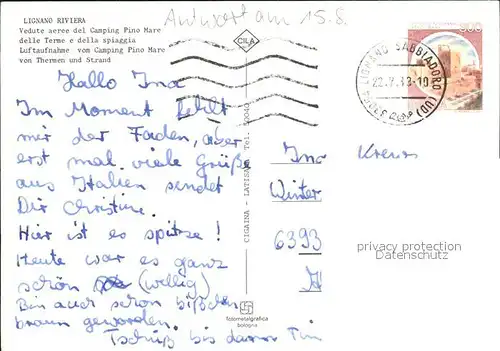 LIGNANO RIVIERA
Vedute aeree del Camping Pino Mare
delle Terme e della spiaggia
Luftaufnahme vom Camping Pino Mare
von Thermen und Strand
Antwort am 15.8.
CILA
LIGNANO SABBIADORO (UD)
Hallo Ina
Im Moment fehlt
mir der Faden, aber
erst mal viele Grüße
aus Italien sendet
Dir Christine.
Hier ist es spitze!
Heute war es ganz
schön (wellig)
Bin auch schon bißchen
braun geworden.
Tschüß bis dann Tini
CISAINA - LATISANA
fotometalgrafica
bologna
Ina
Winter
6393
privacy protection
Datenschutz